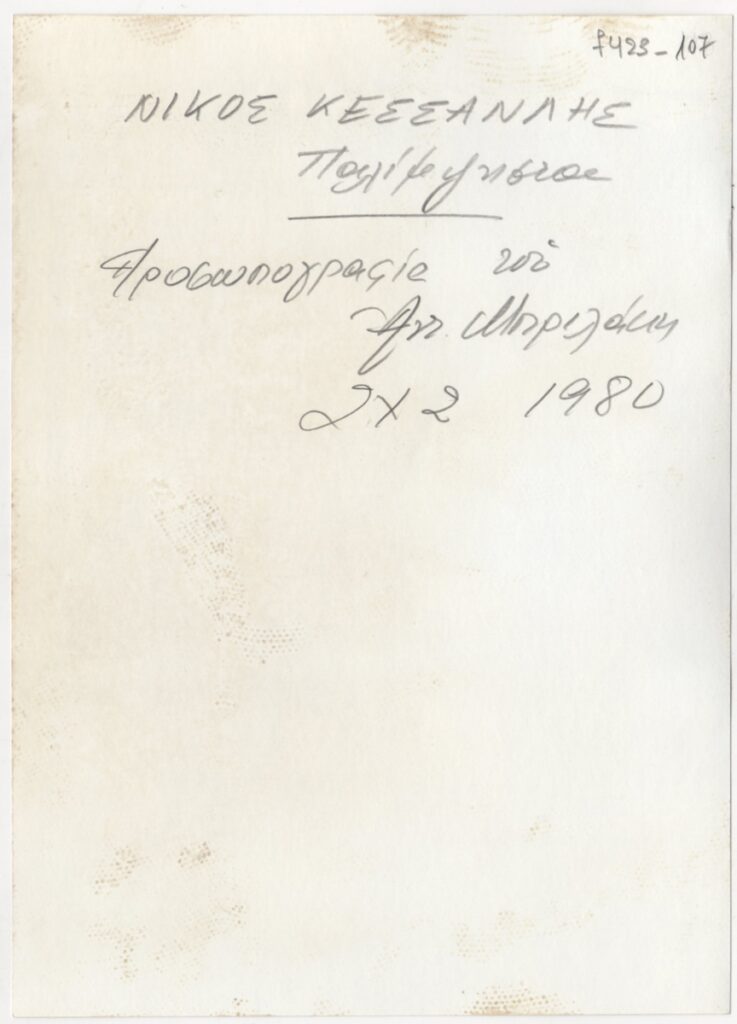 f423-107
ΝΙΚΟΣ ΚΕΣΣΑΝΛΗΣ
Παλίμψηστος
Προσωπογραφία τοῦ
Αντ. Μπριλάκη
2x2 1980